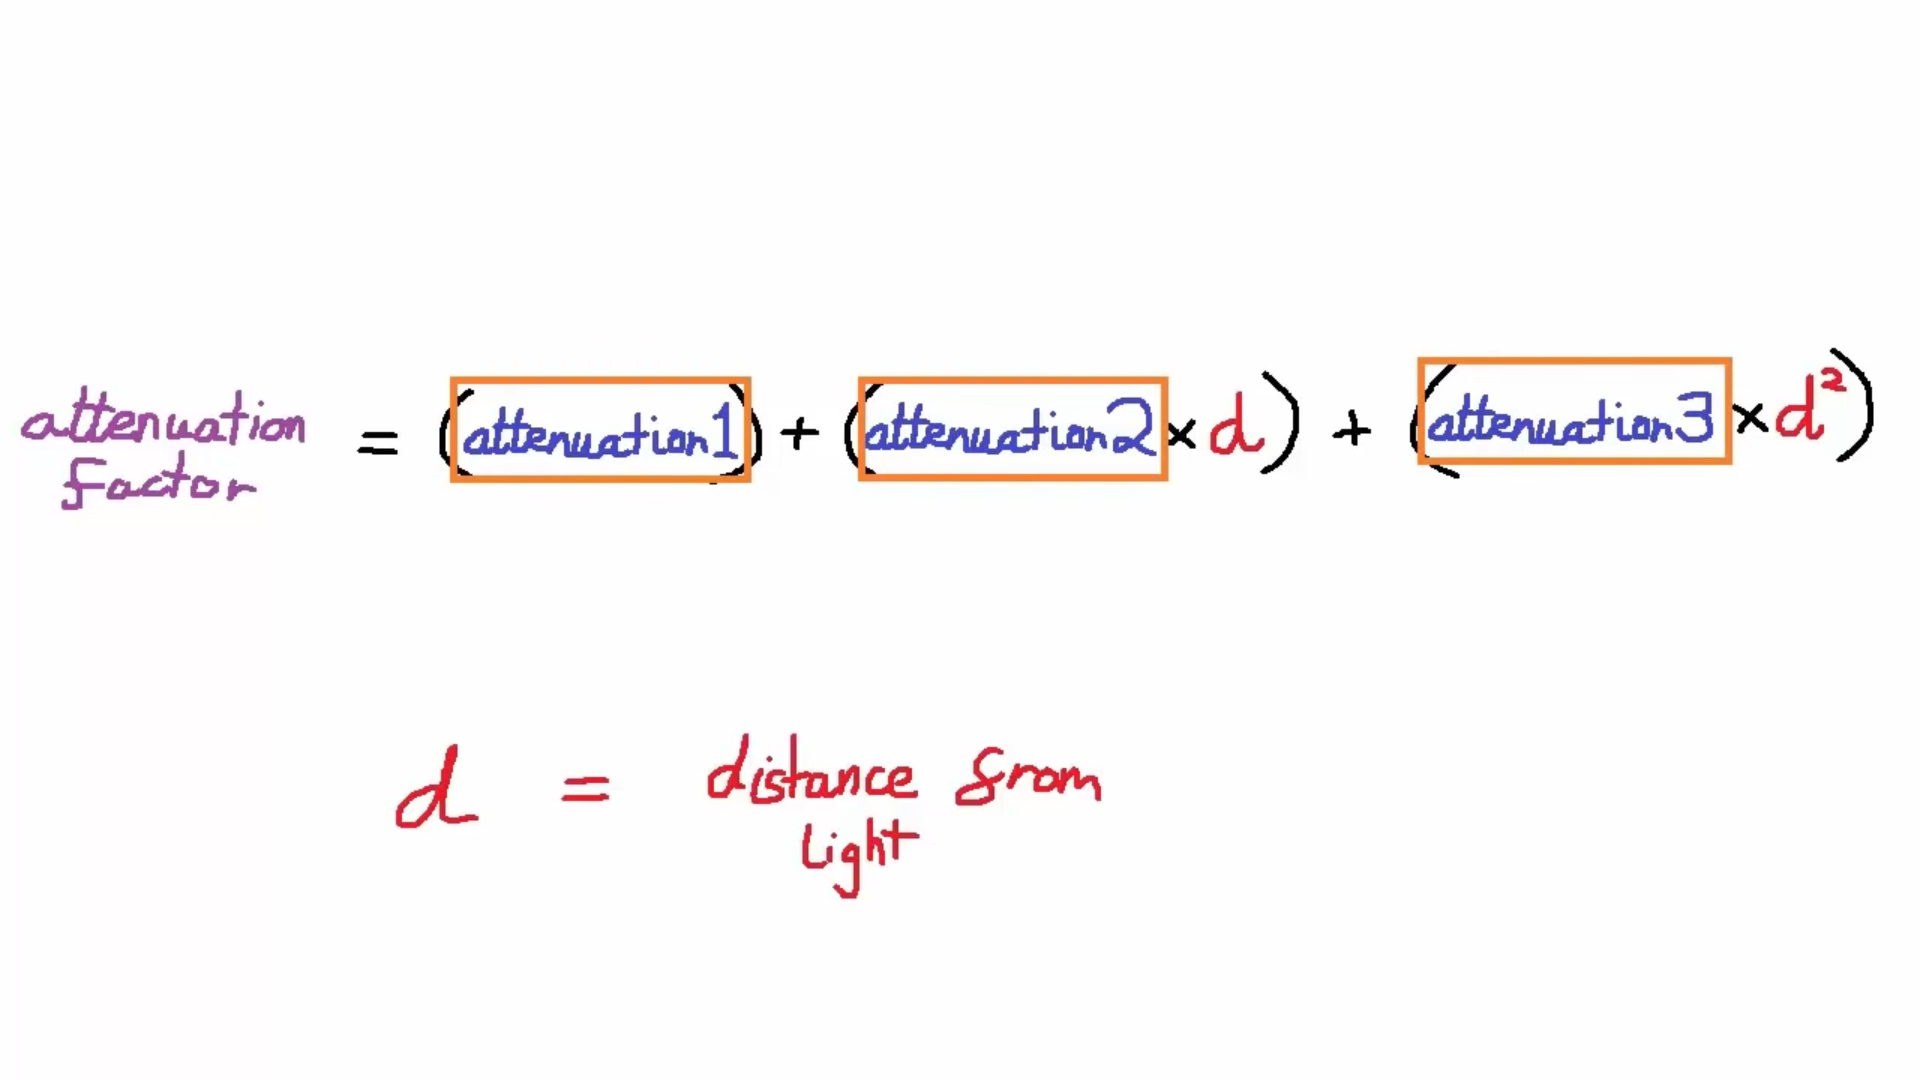 attenuation factor = (attenuation1) + (attenuation2 × d) + (attenuation3 × d²)
d = distance from
light